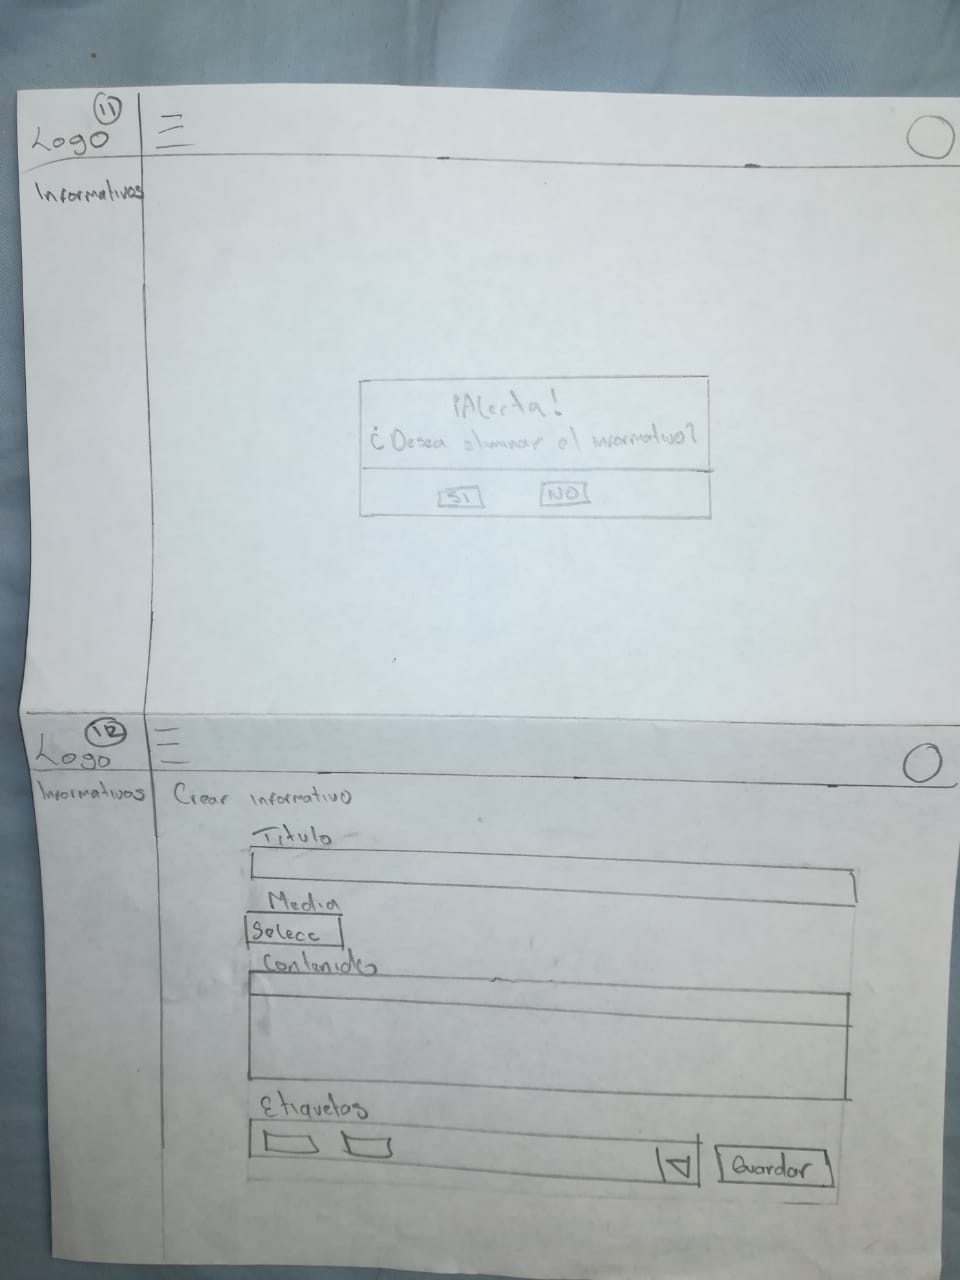 11
Logo
Informativos
¡Alerta!
¿Desea eliminar el informativo?
SI NO
12
Logo
Informativos Crear informativo
Titulo
Media
Selecc
Contenido
Etiquetas
Guardar